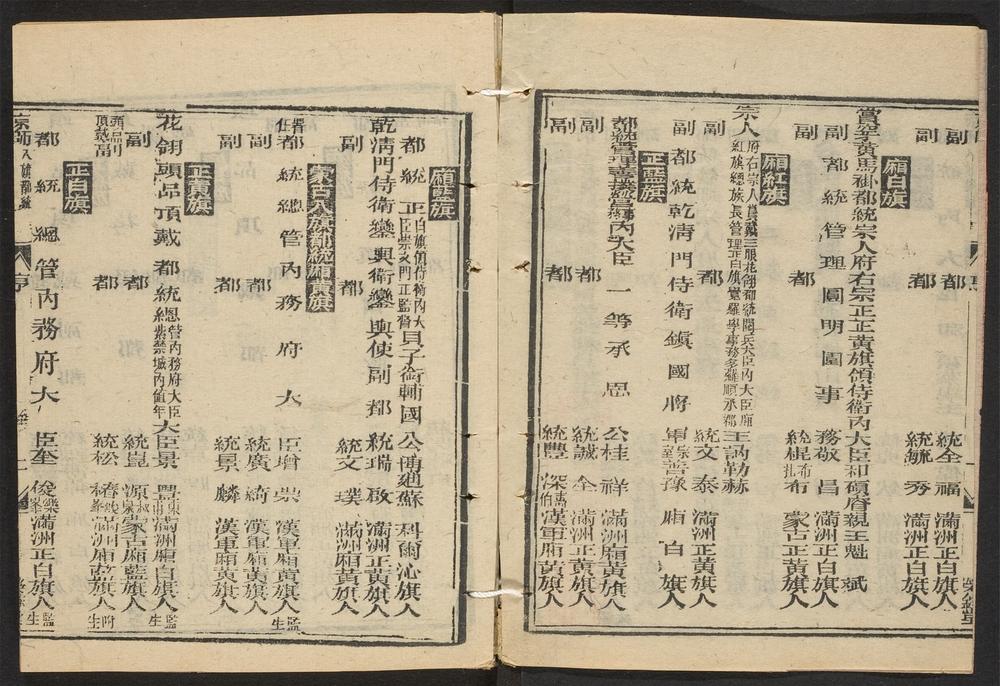 副都統全福滿洲正白旗人
副都統毓秀滿洲正白旗人
廂白旗
賞穿黃馬褂都統宗人府右宗正正黃旗領侍衛內大臣和碩睿親王魁斌
副都統管理圓明園事務敬昌滿洲正白旗人
副都統布蒙古正黃旗人
廂紅旗
宗人府右宗人賞戴三眼花翎都統閱兵大臣內大臣廂紅旗總族長管理正白旗覺羅學事務多羅順承郡王訥勒赫
副都統文泰滿洲正黃旗人
副都統乾清門侍衛鎮國將軍豫廂白旗人
正藍旗
都統管理善撲營事務內大臣一等承恩公桂祥滿洲廂黃旗人
副都統誠全滿洲正黃旗人
副都統豐深漢軍廂黃旗人
廂藍旗
都統正白旗領侍衛內大臣崇文門正監督貝子銜輔國公博迪蘇科爾沁旗人
乾清門侍衛鑾輿衛鑾輿使副都統瑞啟滿洲正黃旗人
副都統文璞滿洲廂黃旗人
蒙古八旗都統廂黃旗
都統總管內務府大臣增崇漢軍廂黃旗人監生
副都統廣綺漢軍廂黃旗人
副都統景麟漢軍廂黃旗人
正黃旗
花翎頭品頂戴都統總管內務府大臣紫禁城內值年大臣景灃滿洲廂白旗人監生
副都統崑源蒙古廂藍旗人
頭品頂戴副都統松椿滿洲廂藍旗人附生
正白旗
都統總管內務府大臣奎俊滿洲正白旗人